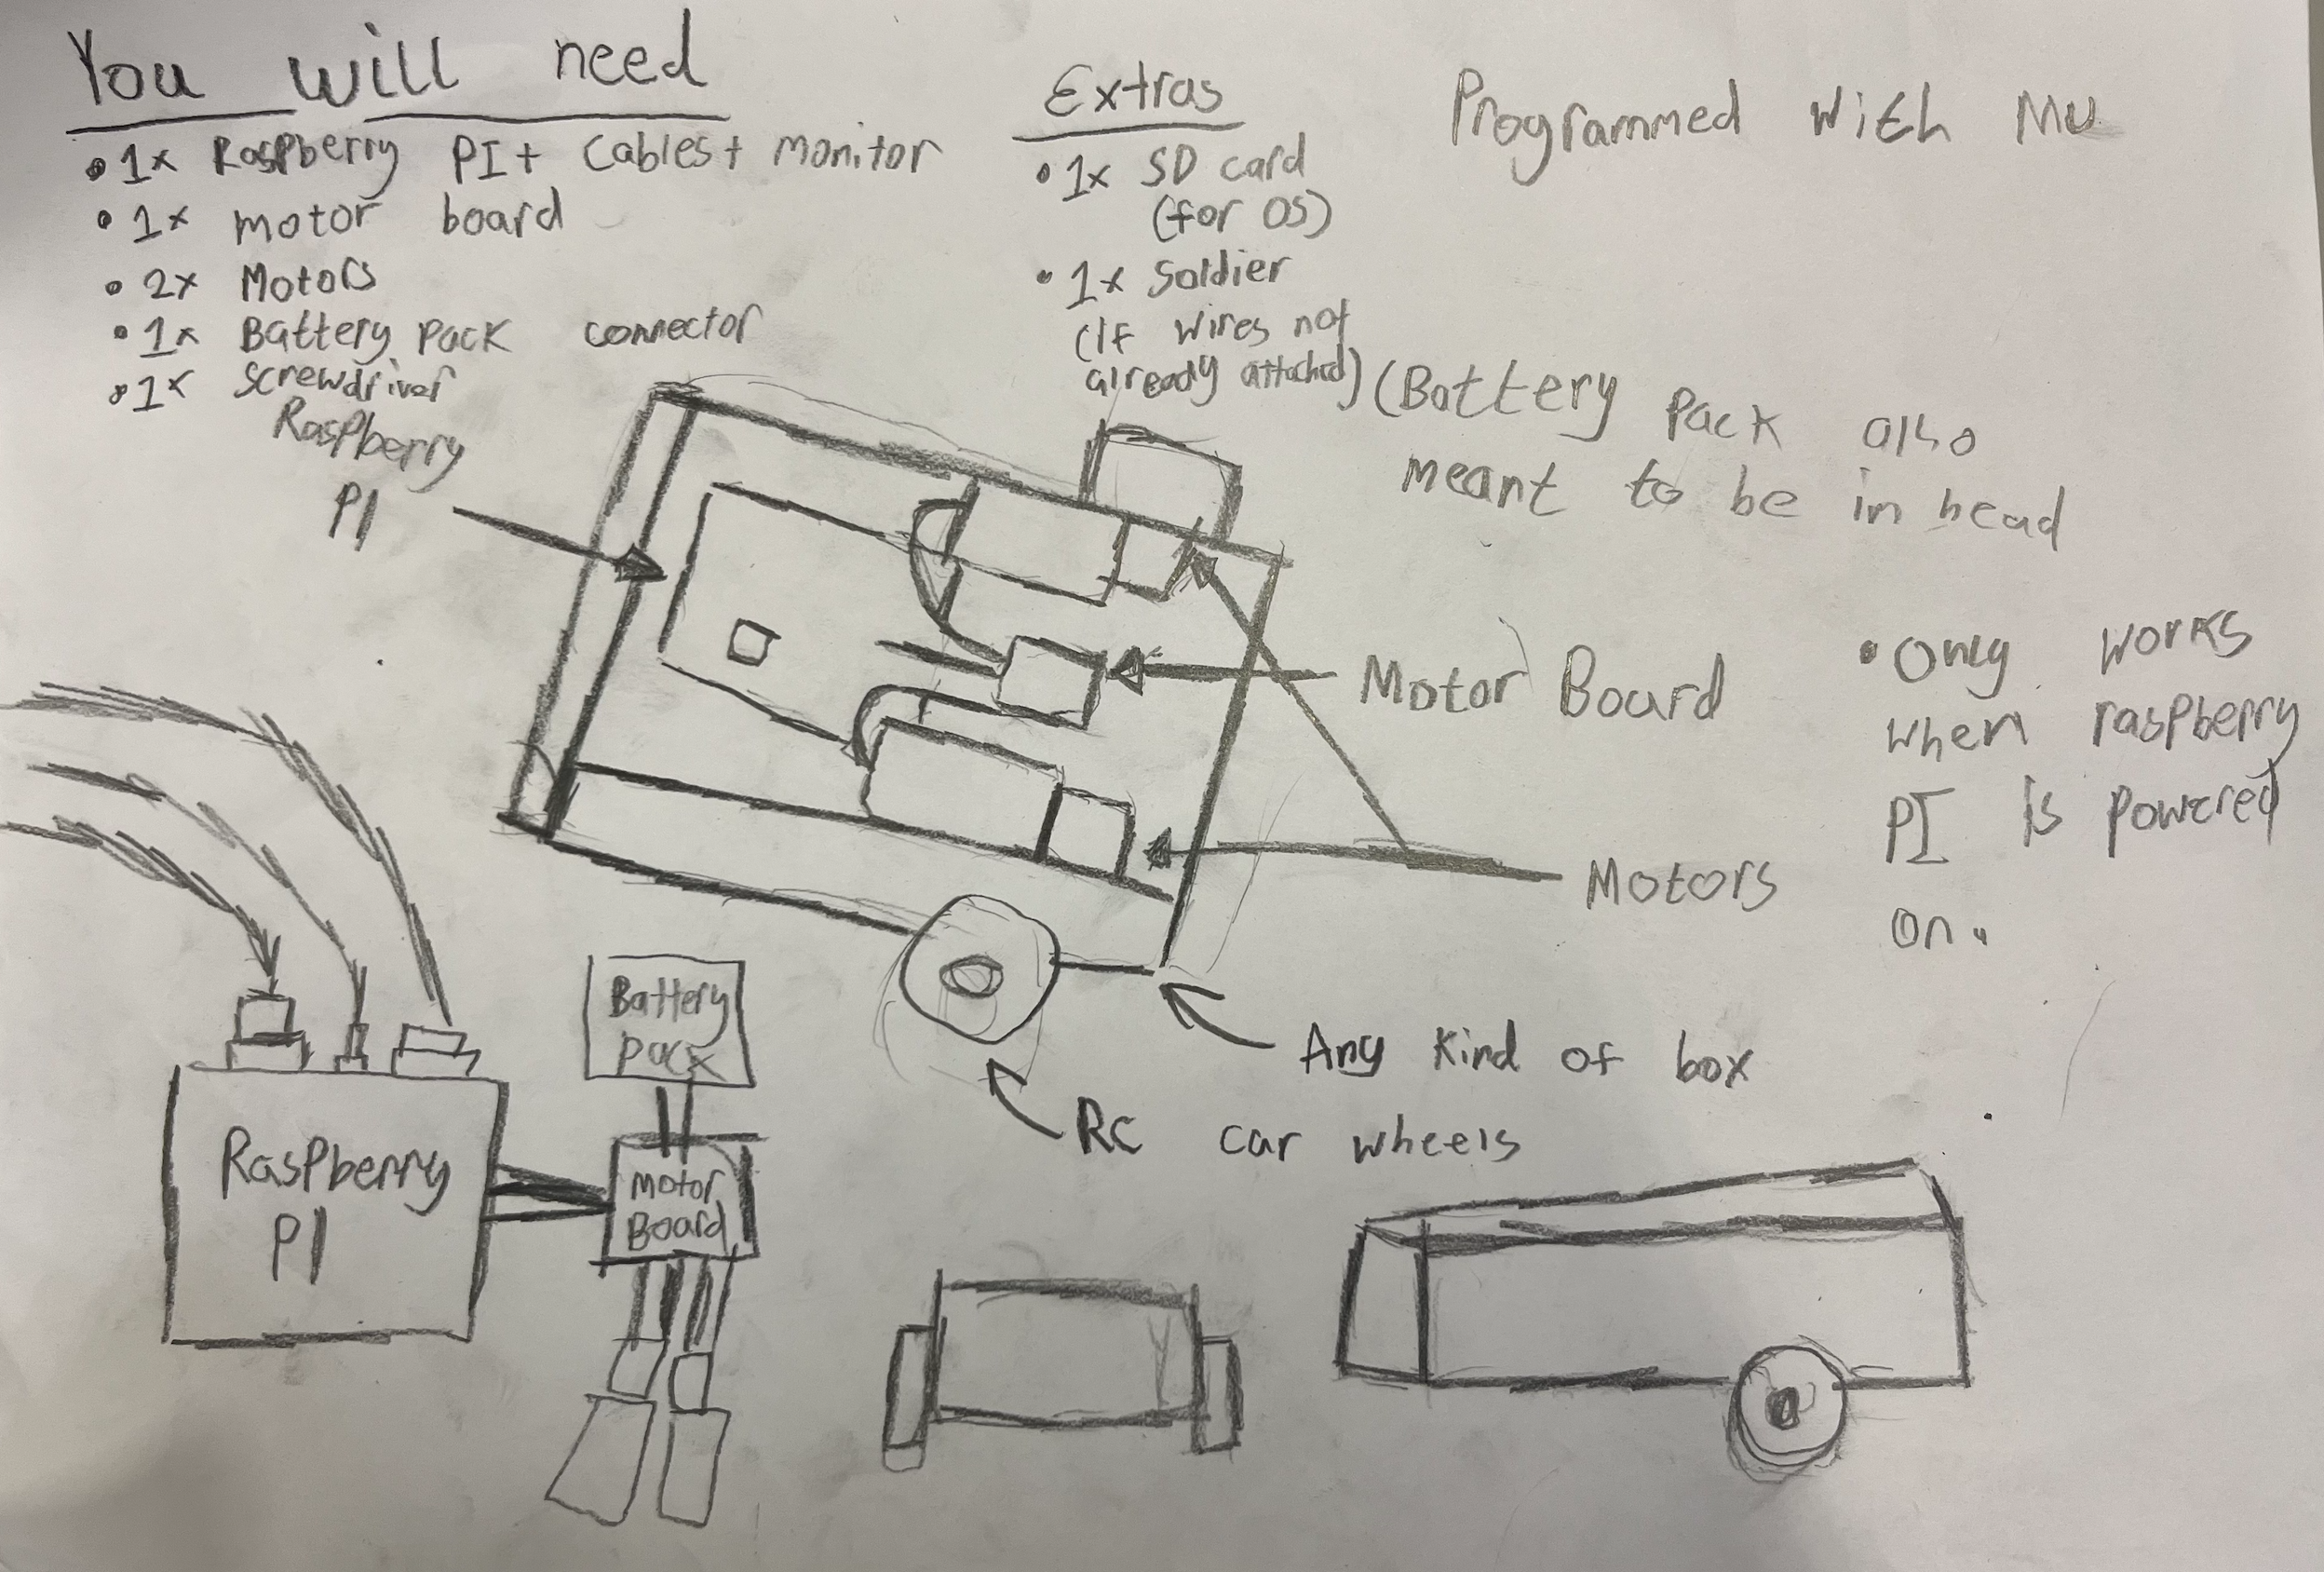 You will need
• 1x Raspberry PI + Cables + monitor
• 1x motor board
• 2x Motors
• 1x Battery pack connector
• 1x screwdriver
Extras
• 1x SD card
(for OS)
• 1x Soldier
(If wires not
already attached)
Programmed with MU
(Battery pack also
meant to be in head
Raspberry
PI
Motor Board
Motors
• Only works
when raspberry
PI is powered
on.
Any kind of box
RC car wheels
Battery
pack
Raspberry
PI
Motor
Board